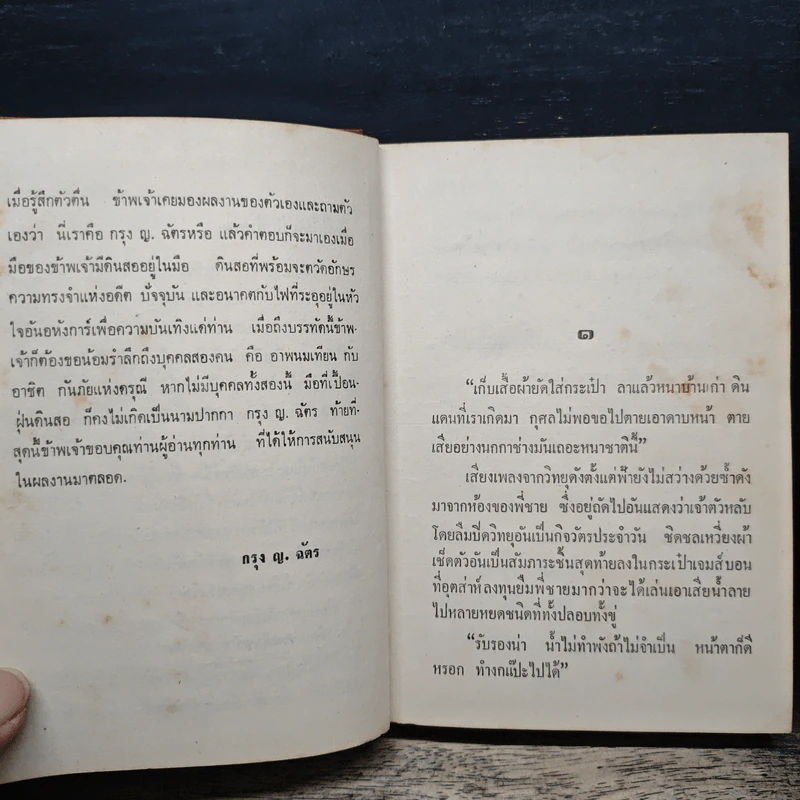 เมื่อรู้สึกตัวตื่น ข้าพเจ้าเคยมองผลงานของตัวเองและถามตัว
เองว่า นี่เราคือ กรุง ญ. ฉัตรหรือ แล้วคำตอบก็จะมาเองเมื่อ
มือของข้าพเจ้ามีดินสออยู่ในมือ ดินสอที่พร้อมจะตวัดอักษร
ความทรงจำแห่งอดีต ปัจจุบัน และอนาคตกับไฟที่ระอุอยู่ในหัว
ใจอันอหังการ์เพื่อความบันเทิงแด่ท่าน เมื่อถึงบรรทัดนี้ข้าพ-
เจ้าก็ต้องขอน้อมรำลึกถึงบุคคลสองคน คือ อาพนมเทียน กับ
อาชิต กันภัยแห่งดรุณี หากไม่มีบุคคลทั้งสองนี้ มือที่เปื้อน-
ฝุ่นดินสอ ก็คงไม่เกิดเป็นนามปากกา กรุง ญ. ฉัตร ท้ายที่-
สุดนี้ข้าพเจ้าขอบคุณท่านผู้อ่านทุกท่าน ที่ได้ให้การสนับสนุน
ในผลงานมาตลอด.
กรุง ญ. ฉัตร
๑
“เก็บเสื้อผ้ายัดใส่กระเป๋า ลาแล้วหนาบ้านเก่า ดิน
แดนที่เราเกิดมา กุศลไม่พอขอไปตายเอาดาบหน้า ตาย
เสียอย่างนกกาช่างมันเถอะหนาชาตินี้”
เสียงเพลงจากวิทยุดังตั้งแต่ฟ้ายังไม่สว่างด้วยซ้ำดัง
มาจากห้องของพี่ชาย ซึ่งอยู่ถัดไปอันแสดงว่าเจ้าตัวหลับ
โดยลืมปิดวิทยุอันเป็นกิจวัตรประจำวัน ชิดชลเหวี่ยงผ้า
เช็ดตัวอันเป็นสัมภาระชิ้นสุดท้ายลงในกระเป๋าเจมส์บอน
ที่อุตส่าห์ลงทุนยืมพี่ชายมากว่าจะได้เล่นเอาเสียน้ำลาย
ไปหลายหยดชนิดที่ทั้งปลอบทั้งขู่
“รับรองน่า น้ำไม่ทำพังถ้าไม่จำเป็น หน้าตาก็ดี
หรอก ทำงกแป๊ะไปได้”